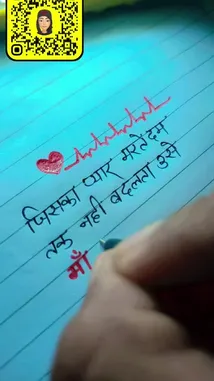 जिसका प्यार मरते दम
तक नही बदलता उसे
माँ